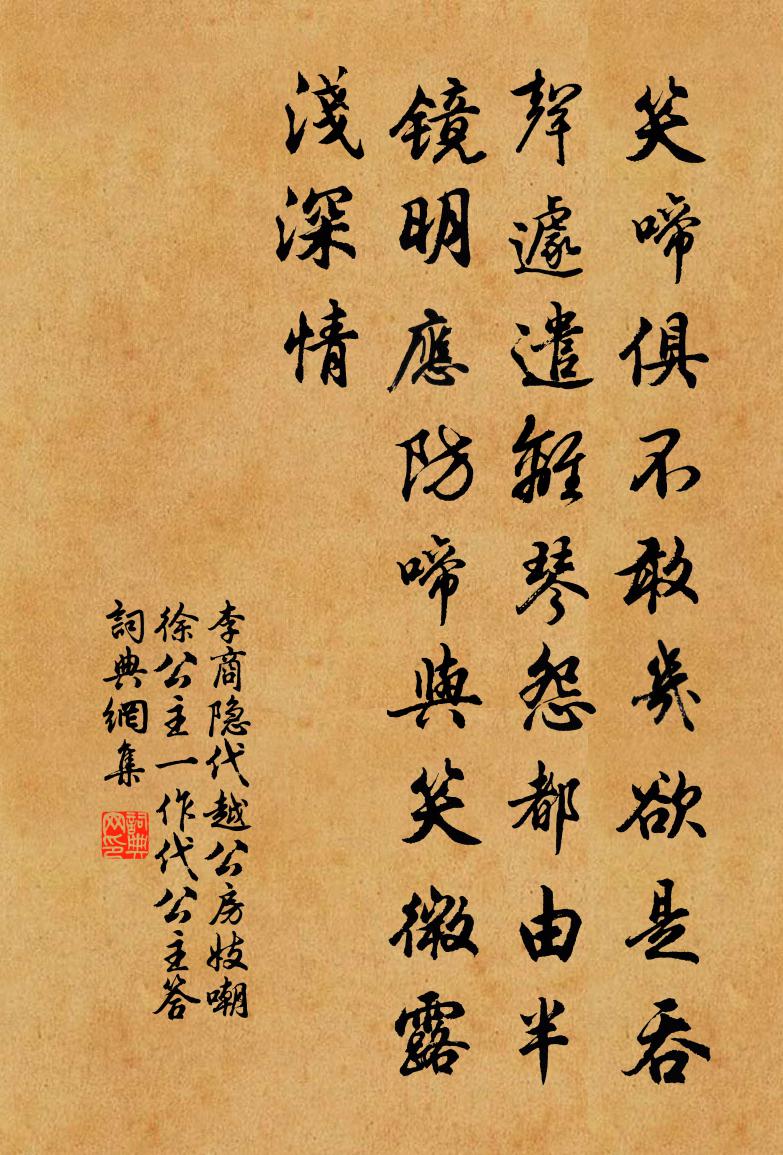 笑啼俱不敢幾欲是吞
聲遽遣離琴怨都由半
鏡明應防啼與笑微露
淺深情
李商隐代越公房妓嘲
徐公主一作代公主答
詞典網集
詞典網印